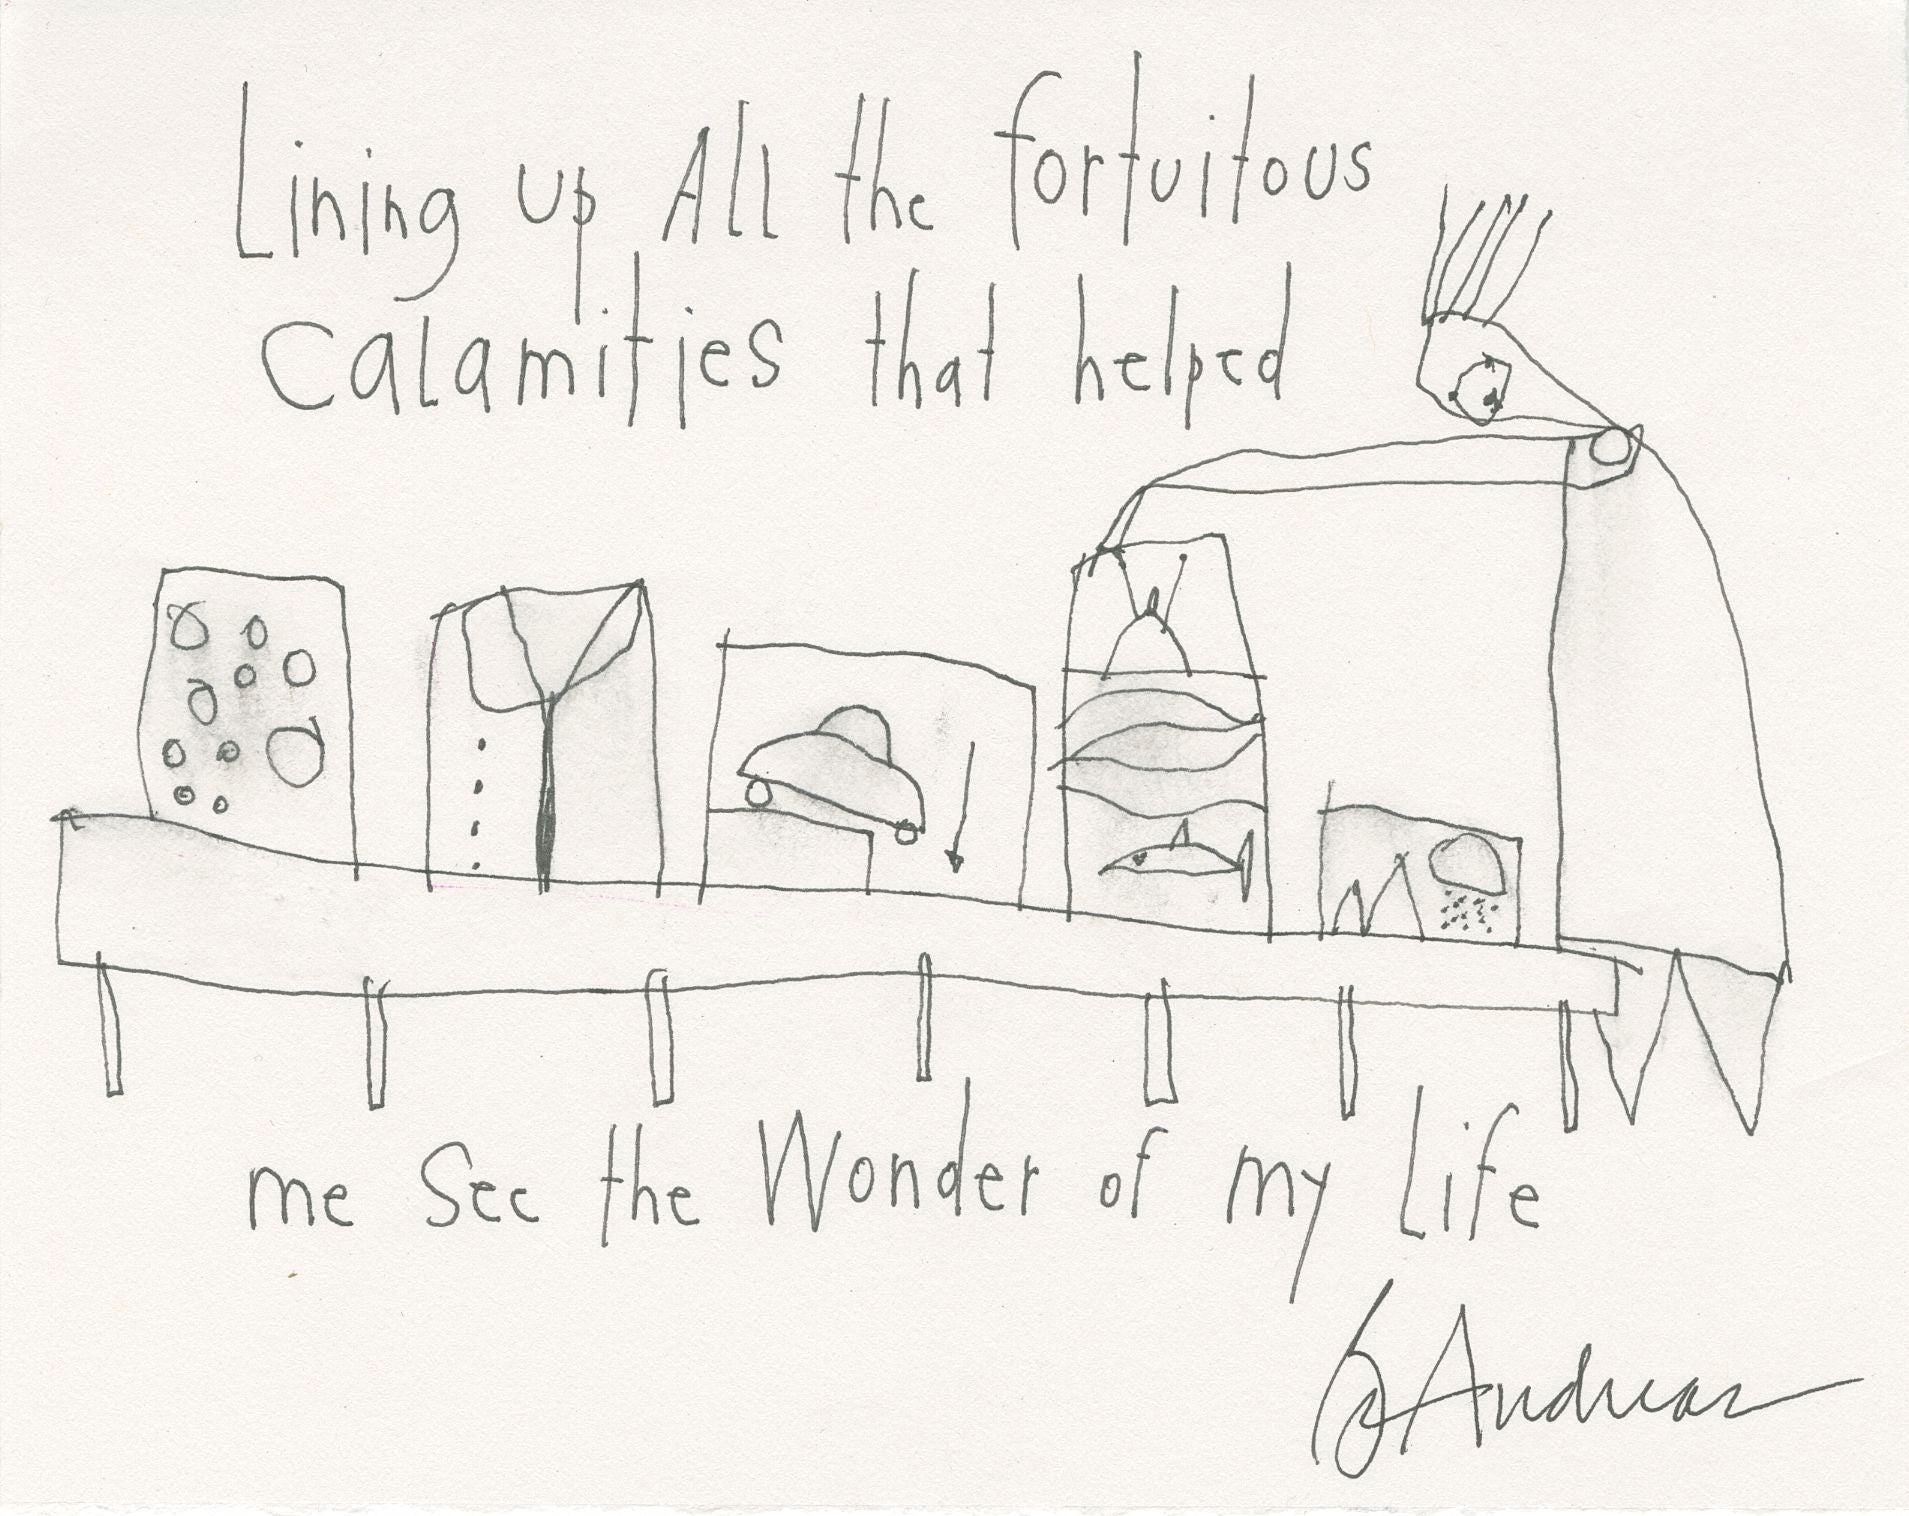 Lining up All the fortuitous
calamities that helped
me see the Wonder of my Life
Andreas